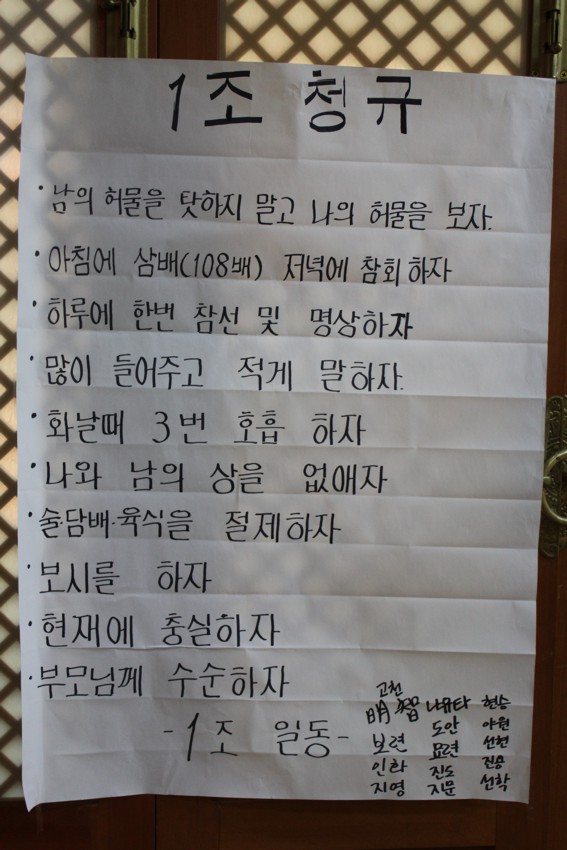 1조 청규
· 남의 허물을 탓하지 말고 나의 허물을 보자.
· 아침에 삼배(108배) 저녁에 참회하자
· 하루에 한번 참선 및 명상하자
· 많이 들어주고 적게 말하자.
· 화날때 3번 호흡 하자
· 나와 남의 상을 없애자
· 술·담배·육식을 절제하자
· 보시를 하자
· 현재에 충실하자
· 부모님께 수순하자
-1조 일동-
고천
明智 나유타 현승
보련 도안 야원
인화 묘련 선현
지영 진도 진용
지문 선학